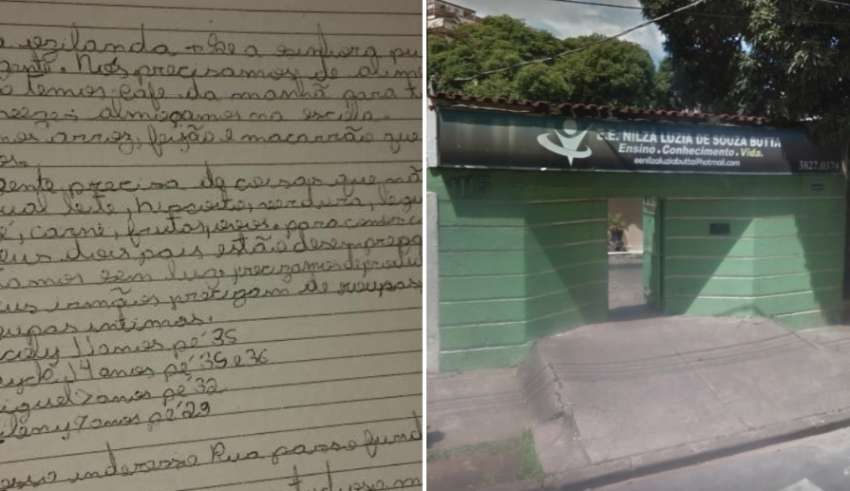 a sezilanda + Se a senhora pu
gente. Nós precisamos de alim
o temos café da manhã para t
almoçamos na escola.
mos arroz, feijão e macarrão que
os.
gente precisa de coisas que nã
ual leite, biscoito, verdura, legu
é, carne, frutas, ovos. para
eus dois pais estão desempreg
tamos sem luz, precizamos di produ
us irmãos precizam de roupas
upas intimas.
11 anos pé 35
14 anos pé 35 e 36
iguel 7 anos pé 32
leny, 7 anos pé 29
esse inderesso Rua passo fund
E.E. NILZA LUZIA DE SOUZA BUTTA
Ensino.Conhecimento.Vida.
eenilzaluziabutta@hotmail.com
3827.0376